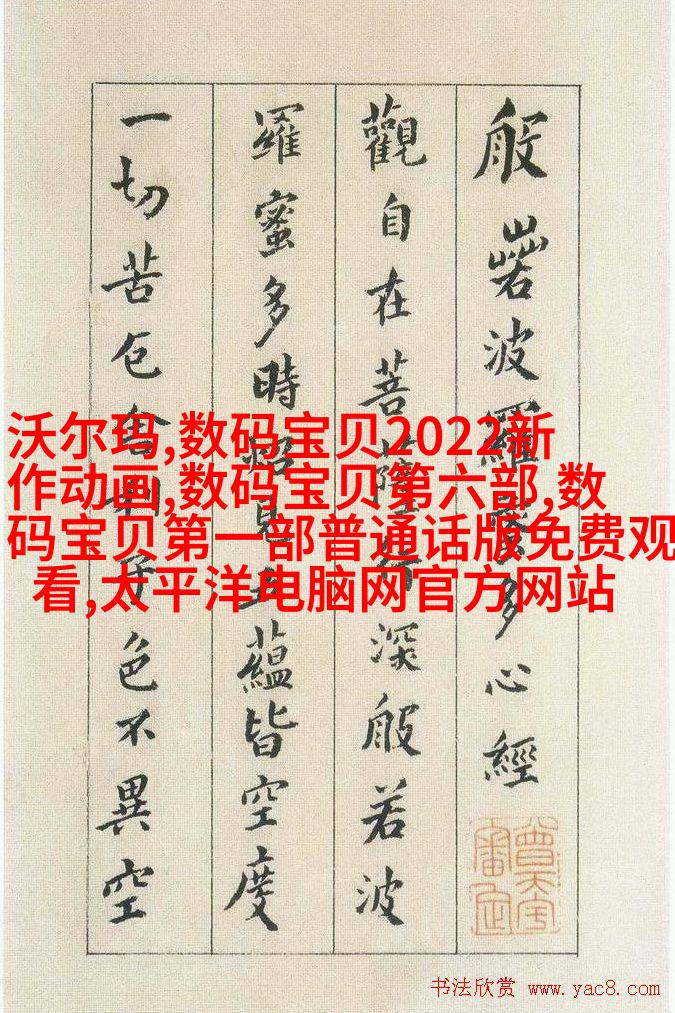 般若波羅蜜多心經
觀自在菩薩行深般若波
羅蜜多時照見五蘊皆空度
一切苦厄舍利子色不異空
沃尔玛,数码宝贝2022新
作动画,数码宝贝第六部,数
码宝贝第一部普通话版免费观
看,太平洋电脑网官方网站
书法欣赏 www.yac8.com